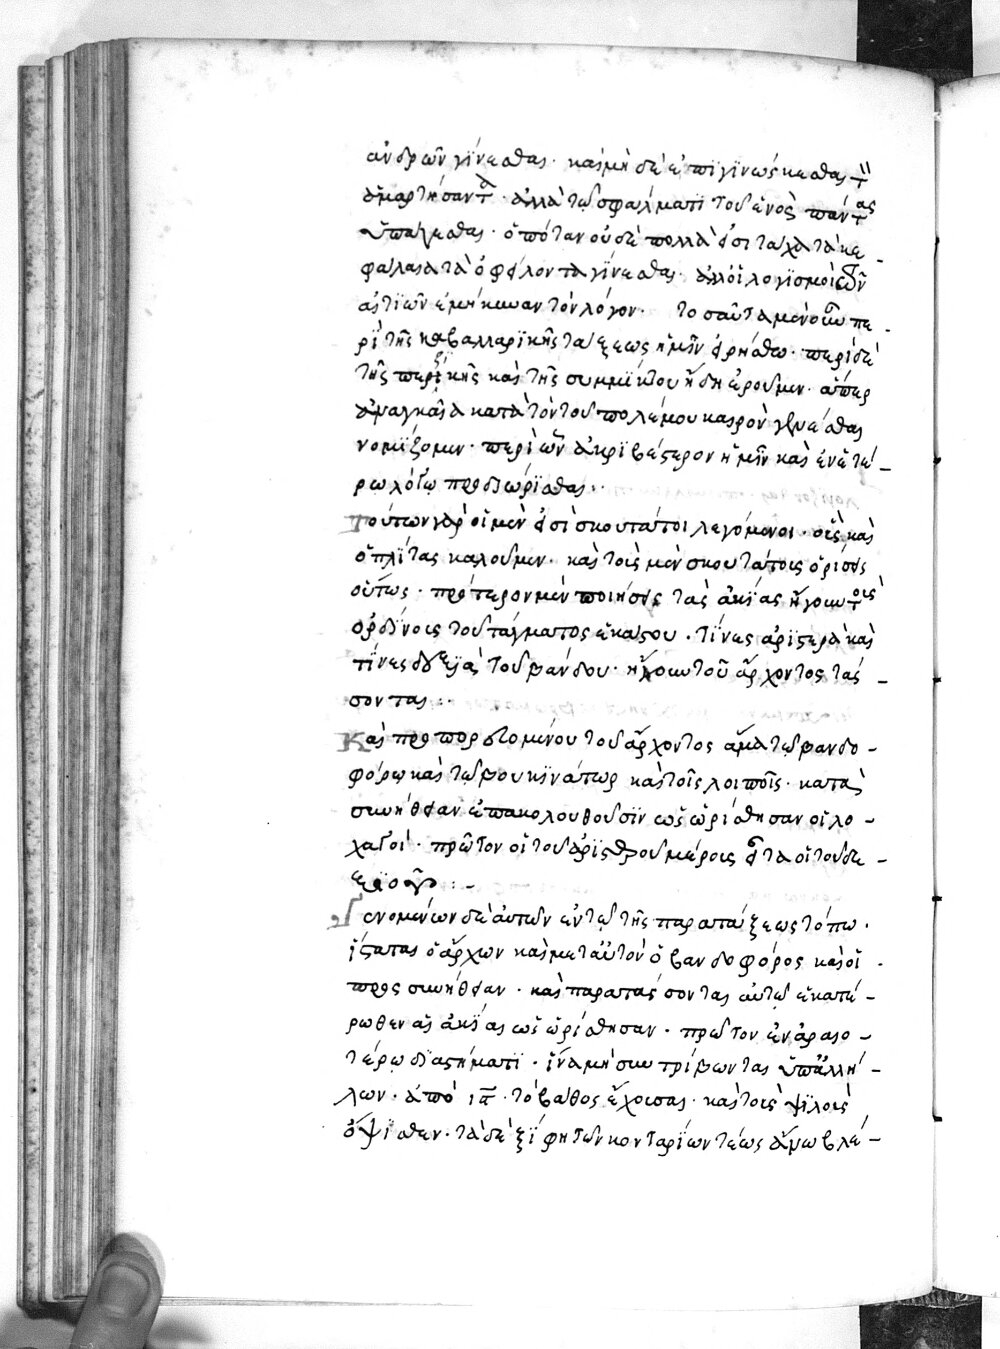 ἀνδρῶν γίνεσθαι· καὶ μὴ δὲ ἐπιγινώσκεσθαι τ
ἁμαρτήσαντ · ἀλλὰ τῷ σφάλματι τοῦ ἑνὸς πάντας
ὑπάγεσθαι· ὁπόταν οὐδὲ πολλὰ εἰσι τάχα τὰ κε-
φάλαια τὰ ὀφείλοντα γίνεσθαι· ἀλλ οἱ λογισμοὶ τῶν
αἰτιῶν ἐμήκυναν τὸν λόγον· τοσαῦτα μὲν οὖν πε-
ρὶ τῆς καβαλλαρικῆς τάξεως ἡμῖν εἰρήσθω· περὶ δὲ
τῆς πεζικῆς καὶ τῆς συμμίκτου ἤδη ἐροῦμεν· ἅπερ
ἀναγκαῖα κατὰ τὸν τοῦ πολέμου καιρὸν γενέσθαι
νομίζομεν· περὶ ὧν ἀκριβέστερον ἡμῖν καὶ ἐν ἑτέ-
ρω λόγω προδιώρισθαι··
Τούτων γὰρ οἱ μὲν εἰσὶ σκουτάτοι λεγόμενοι· οὓς καὶ
ὁπλίτας καλοῦμεν· καὶ τοὺς μὲν σκουτάτους ὁρίσεις
οὕτως· πρότερον μὲν ποιήσεις τὰς ἀκίας ἤγουν τοὺς
ὀρδίνους τοῦ τάγματος ἑκάστου· τίνες ἀριστερὰ καὶ
τίνες δεξιὰ τοῦ βάνδου· ἤγουν τοῦ ἄρχοντος τάσ-
σονται··
Καὶ προπορευομένου τοῦ ἄρχοντος ἅμα τῷ βανδο-
φόρω καὶ τῷ βουκινάτωρ καὶ τοῖς λοιποῖς· κατὰ
συνήθειαν ἐπακολουθοῦσιν ὡς ὡρίσθησαν οἱ λο-
χαγοί· πρῶτον οἱ τοῦ ἀριστεροῦ μέρους εἶτα οἱ τοῦ δε-
ξιοῦ··-
Γενομένων δὲ αὐτῶν ἐν τῷ τῆς παρατάξεως τόπω·
ἵσταται ὁ ἄρχων καὶ μετ αὐτὸν ὁ βανδοφόρος καὶ οἱ
πρὸς συνήθειαν· καὶ παρατάσσονται αὐτῷ ἑκατέ-
ρωθεν αἱ ἀκίαι ὡς ὡρίσθησαν· πρῶτον ἐν ἀραιο-
τέρω διαστήματι· ἵνα μὴ συντρίβωνται ὑπ ἀλλή-
λων· ἀπὸ ιϛ· τὸ βάθος ἔχουσαι· καὶ τοὺς ψιλοὺς
ὄπισθεν· τὰ δὲ ξίφη τῶν κονταρίων τέως ἄνω βλέ-